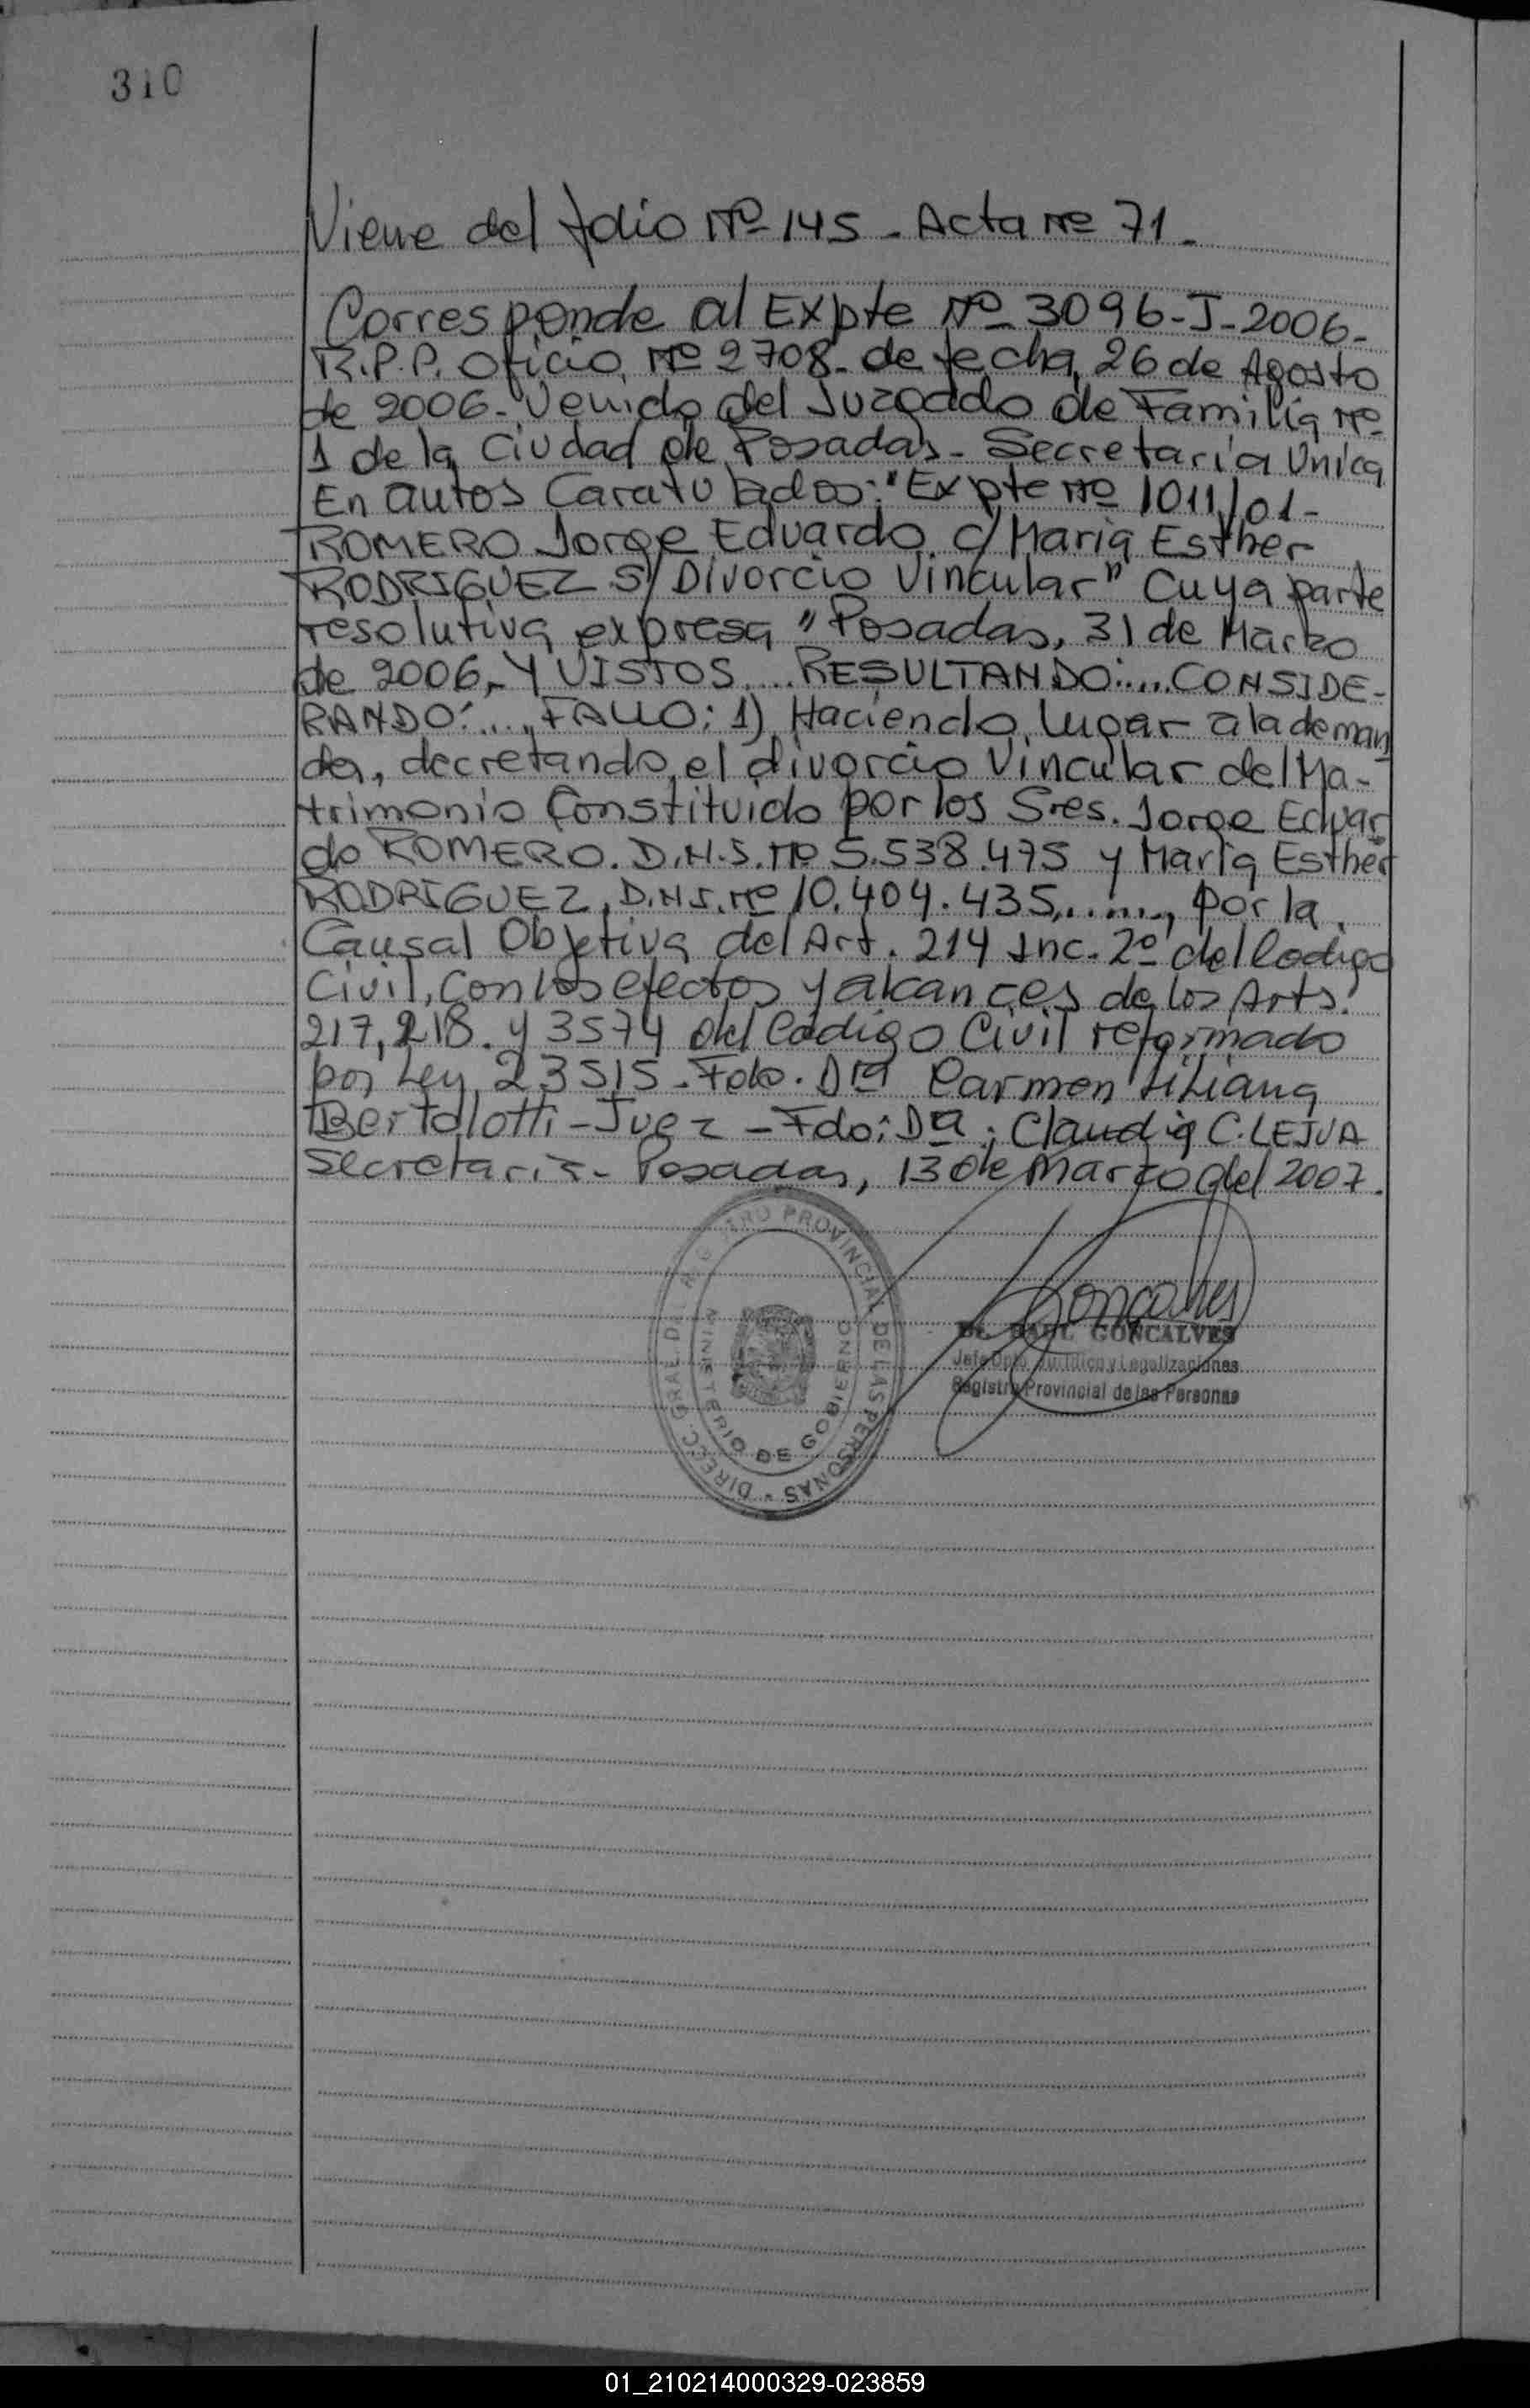 310
Viene del folio Nº 145 - Acta Nº 71 -
Corresponde al Expte Nº 3096-J-2006-
R.P.P. Oficio Nº 2708- de fecha 26 de Agosto
de 2006- Venido del Juzgado de Familia Nº
1 de la Ciudad de Posadas - Secretaria Unica
En autos Caratulados: "Expte Nº 1011/01-
ROMERO Jorge Eduardo c/ Maria Esther
RODRIGUEZ S/ Divorcio Vincular" Cuya parte
resolutiva expresa "Posadas, 31 de Marzo
de 2006,- Y VISTOS .... RESULTANDO:.... CONSIDE-
RANDO:...., FALLO: 1) Haciendo lugar a la deman
da, decretando el divorcio Vincular del Ma-
trimonio Constituido por los Sres. Jorge Eduar
do ROMERO. D.N.I. Nº 5.538.475 y Maria Esther
RODRIGUEZ, D.N.I. Nº 10.404.435,......, por la
Causal Objetiva del Art. 214 Inc. 2º del Codigo
Civil, Con los efectos y alcances de los Arts.
217, 218. y 3574 del Codigo Civil reformado
por Ley 23515 - Fdo. Dra Carmen Liliana
Bertolotti - Juez - Fdo: Dra: Claudia C. LEIVA
Secretaria - Posadas, 13 de Marzo del 2007.
DIRECC. GRAL. DEL REGISTRO PROVINCIAL DE LAS PERSONAS
MINISTERIO DE GOBIERNO
Dr. RAUL GONCALVES
Jefe Dpto. Juridico y Legalizaciones
Registro Provincial de las Personas
01_210214000329-023859